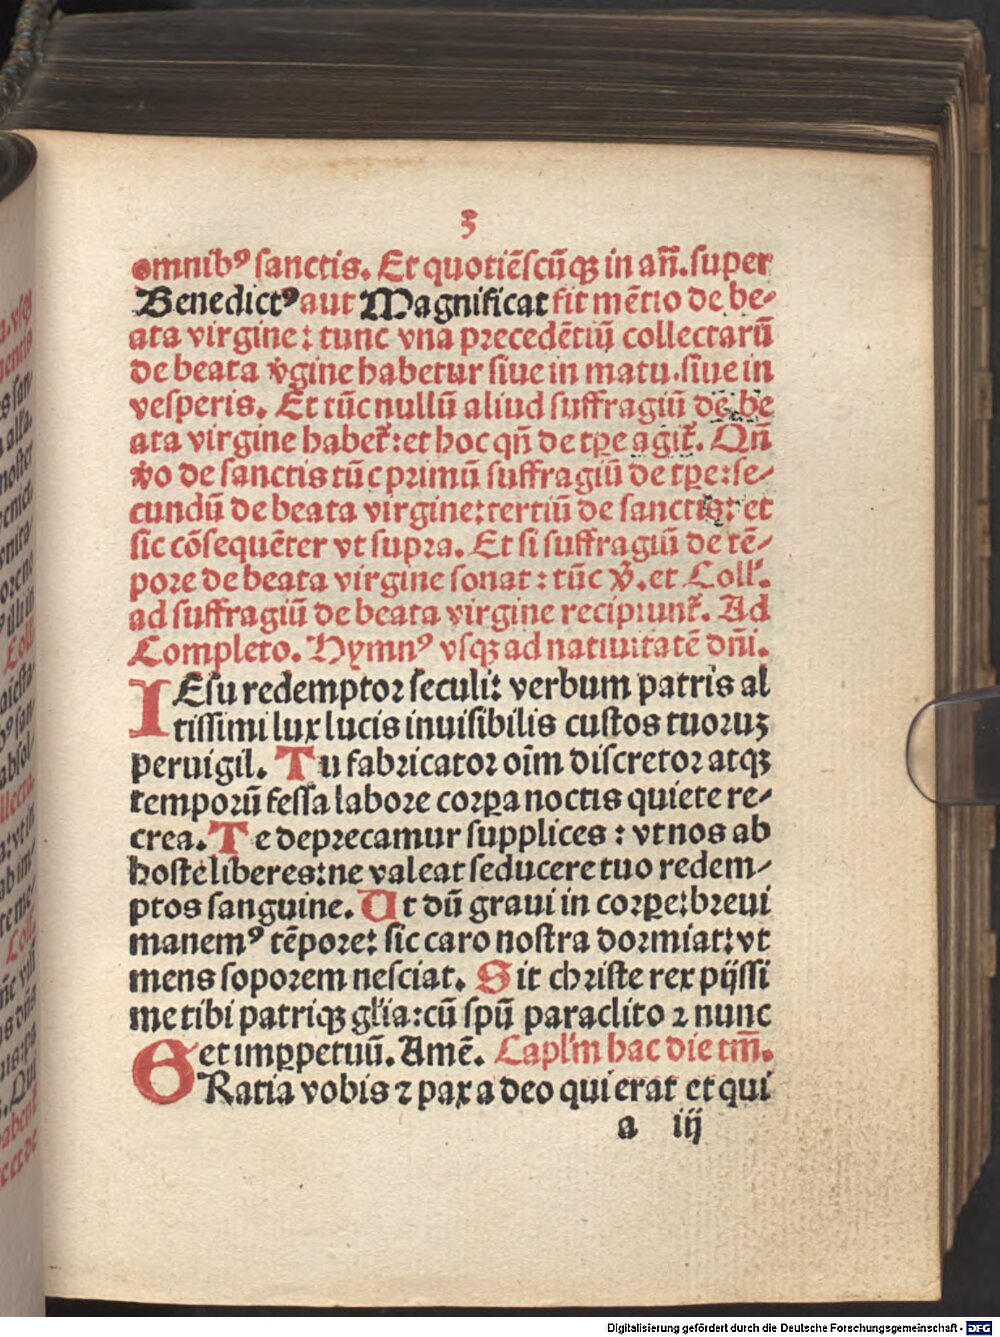 3
omnibꝰ sanctis. Et quotiēscūqꝫ in añ. super
Benedictꝰ aut Magnificat fit mētio de be-
ata virgine: tunc vna precedētiū collectarū
de beata v̄gine habetur siue in matu. siue in
vesperis. Et tūc nullū aliud suffragiū de be
ata virgine habet̄: et hoc qñ de tp̄e agit̄. Qñ
v̄o de sanctis tūc primū suffragiū de tp̄e: se-
cundū de beata virgine: tertiū de sanctis: et
sic cōsequēter vt supra. Et si suffragiū de tē-
pore de beata virgine sonat: tūc v̄. et Coll'.
ad suffragiū de beata virgine recipiunt̄. Ad
Completo. Hymnꝰ vsqꝫ ad natiuitatē dñi.
IEsu redemptor seculi: verbum patris al
tissimi lux lucis inuisibilis custos tuoruꝫ
peruigil. Tu fabricator oīm discretor atqꝫ
temporū fessa labore corꝑa noctis quiete re-
crea. Te deprecamur supplices: vt nos ab
hoste liberes: ne valeat seducere tuo redem-
ptos sanguine. Ut dū graui in corꝑe: breui
manemꝰ tēpore: sic caro nostra dormiat: vt
mens soporem nesciat. Sit christe rex pijssi
me tibi patriqꝫ gl'ia: cū spū paraclito ⁊ nunc
et imꝑpetuū. Amē. Capl'm hac die tm̄.
GRatia vobis ⁊ pax a deo qui erat et qui
a iij
Digitalisierung gefördert durch die Deutsche Forschungsgemeinschaft - DFG